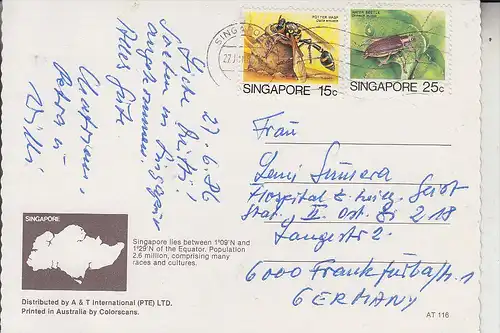 SINGAPO
27 J
POTTER WASP
SINGAPORE 15c
WATER BEETLE
SINGAPORE 25c
27.6.86
Liebe
Soeben in Singapur
angekommen.
Alles Gute
Willi
Frau
Hospital z. heilg. Geist
Stat. II. Ost. 218
Langestr 2.
6000 Frankfurt a. M. 1
GERMANY
SINGAPORE
Singapore lies between 1°09'N and
1°29'N of the Equator. Population
2.6 million, comprising many
races and cultures.
Distributed by A & T International (PTE) LTD.
Printed in Australia by Colorscans.
AT 116